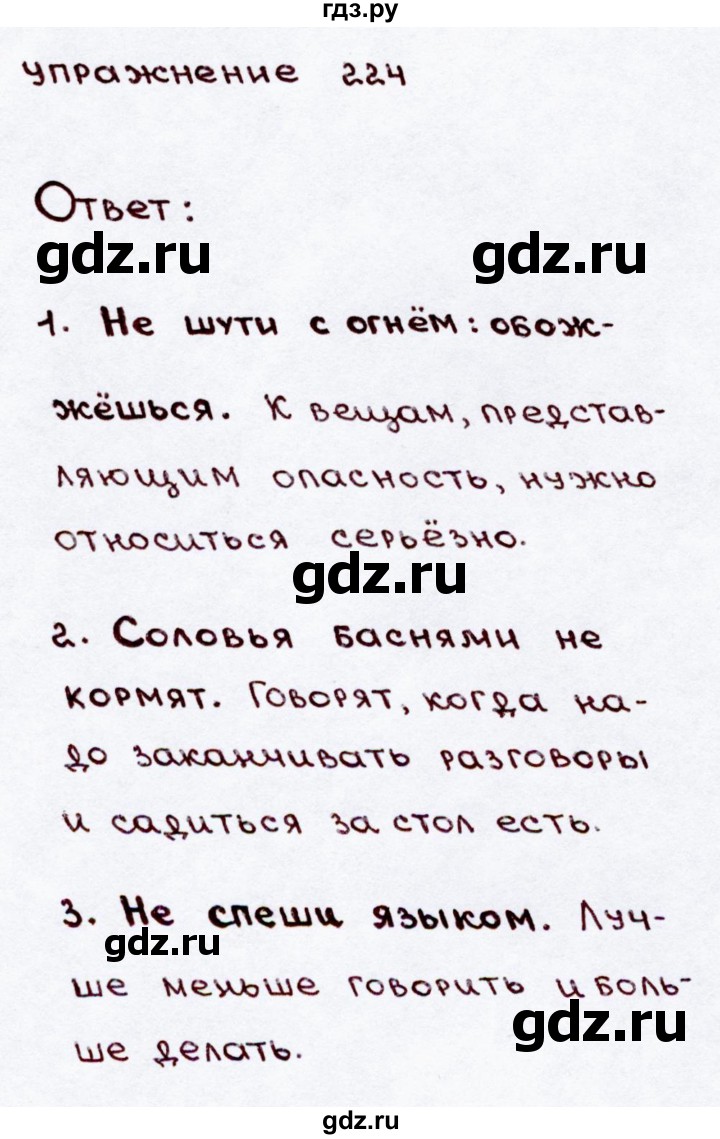 гдз.ру
упражнение 224
Ответ:
gdz.ru gdz.ru
1. Не шути с огнём: обож-
жёшься. К вещам, представ-
ляющим опасность, нужно
относиться серьёзно.
gdz.ru
2. Соловья баснями не
кормят. Говорят, когда на-
до заканчивать разговоры
и садиться за стол есть.
3. Не спеши языком. Луч-
gdz.ru
ше меньше говорить и боль-
gdz.ru
ше делать.
gdz.ru